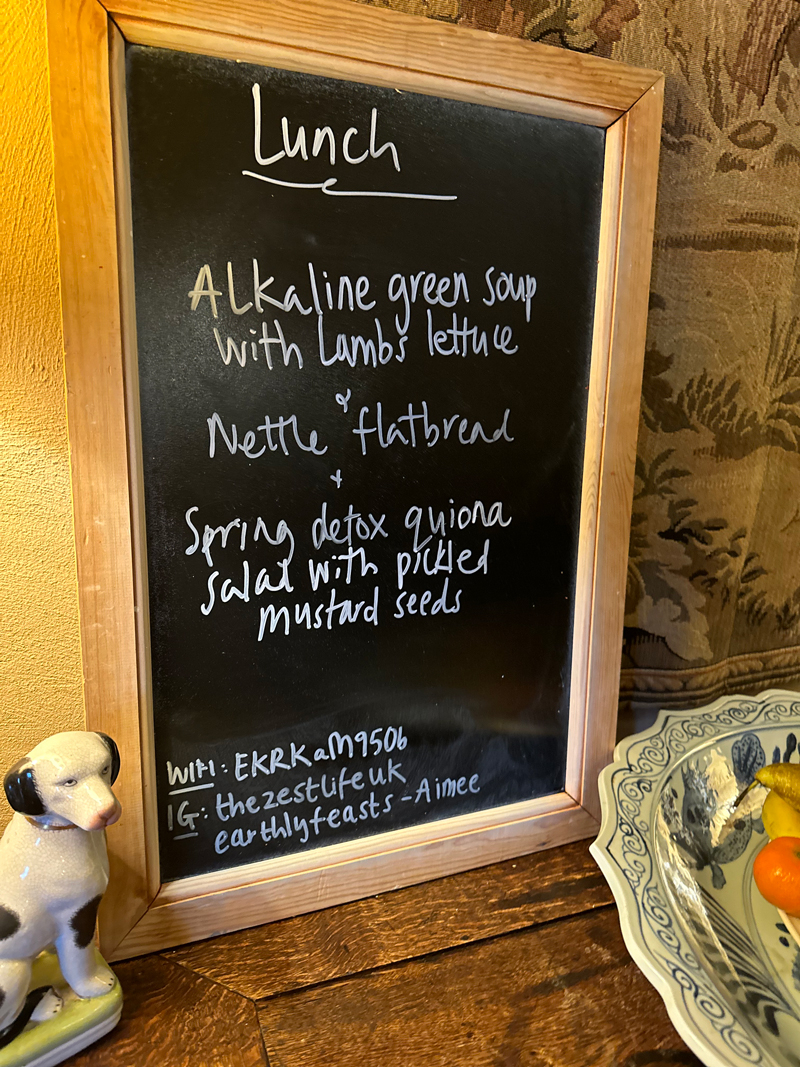 Lunch
Alkaline green soup
with Lambs lettuce
&
Nettle flatbread
+
Spring detox quiona
salad with pickled
mustard seeds
WIFI: EKRKaM9506
IG: thezestlifeuk
earthlyfeasts - Aimee